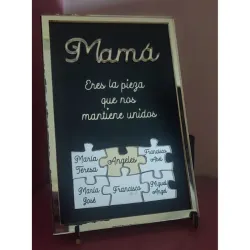 Mamá
Eres la pieza
que nos
mantiene unidos
María
Teresa
Ángeles
María
José
Francisco
Miguel